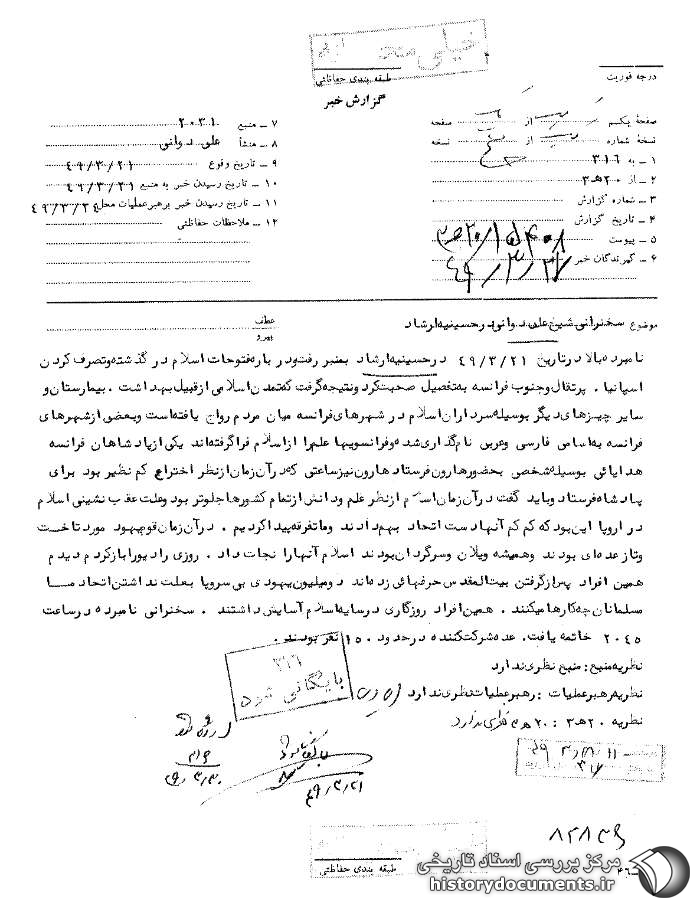 خیلی محر
طبقه بندی حفاظتی
گزارش خبر
درجه فوریت
صفحه یکم از صفحه
نسخه شماره از نسخه
۱ ـ به ۳۱۶
۲ ـ از ۲۰ ه‍ ۳
۳ ـ شماره گزارش
۴ ـ تاریخ گزارش
۵ ـ پیوست
۶ ـ گیرندگان خبر
۷ ـ منبع ۲۰۳۱
۸ ـ منشأ علی دوانی
۹ ـ تاریخ وقوع ۴۹/۳/۲۱
۱۰ ـ تاریخ رسیدن خبر به منبع ۴۹/۳/۲۱
۱۱ ـ تاریخ رسیدن خبر برهبر عملیات محل
۱۲ ـ ملاحظات حفاظتی
موضوع سخنرانی شیخ علی دوانی در حسینیه ارشاد
عطف
پیرو
نامبرده بالا در تاریخ ۴۹/۳/۲۱ در حسینیه ارشاد بمنبر رفت و در باره فتوحات اسلام در گذشته و تصرف کردن
اسپانیا . پرتقال و جنوب فرانسه به تفصیل صحبت کرد و نتیجه گرفت که تمدن اسلامی از قبیل بهداشت . بیمارستان و
سایر چیزهای دیگر بوسیله سرداران اسلام در شهرهای فرانسه میان مردم رواج یافته است و بعضی از شهرهای
فرانسه به اسامی فارسی و عربی نام گذاری شده و فرانسویها علم را از اسلام فرا گرفته اند یکی از پادشاهان فرانسه
هدایائی بوسیله شخصی بحضور هارون فرستاد هارون نیز ساعتی که در آن زمان از نظر اختراع کم نظیر بود برای
پادشاه فرستاد و باید گفت در آن زمان اسلام از نظر علم و دانش از تمام کشورها جلوتر بود و علت عقب نشینی اسلام
در اروپا این بود که کم کم آنها دست اتحاد بهم دادند و ما تفرقه پیدا کردیم . در آن زمان قوم یهود مورد تاخت
و تاز عده ای بودند و همیشه ویلان و سرگردان بودند اسلام آنها را نجات داد . روزی رادیو را باز کردم دیدم
همین افراد پس از گرفتن بیت المقدس حرفهائی زده اند دو میلیون یهودی بی سروپا بعلت نداشتن اتحاد ما
مسلمانان چه کارها میکنند . همین افراد روزگاری در سایه اسلام آسایش داشتند . سخنرانی نامبرده در ساعت
۲۰۴۵ خاتمه یافت . عده شرکت کننده در حدود ۱۵۰ نفر بودند .
نظریه منبع : منبع نظری ندارد
نظریه رهبر عملیات : رهبر عملیات نظری ندارد
نظریه ۲۰ ه‍ ۳ : ۲۰ ه‍ ۳ نظری ندارد
۳۱۶
بایگانی شود
۳۱۶
۴۹/۳/۳۰
۴۹/۳/۳۱
طبقه بندی حفاظتی
مرکز بررسی اسناد تاریخی
historydocuments.ir